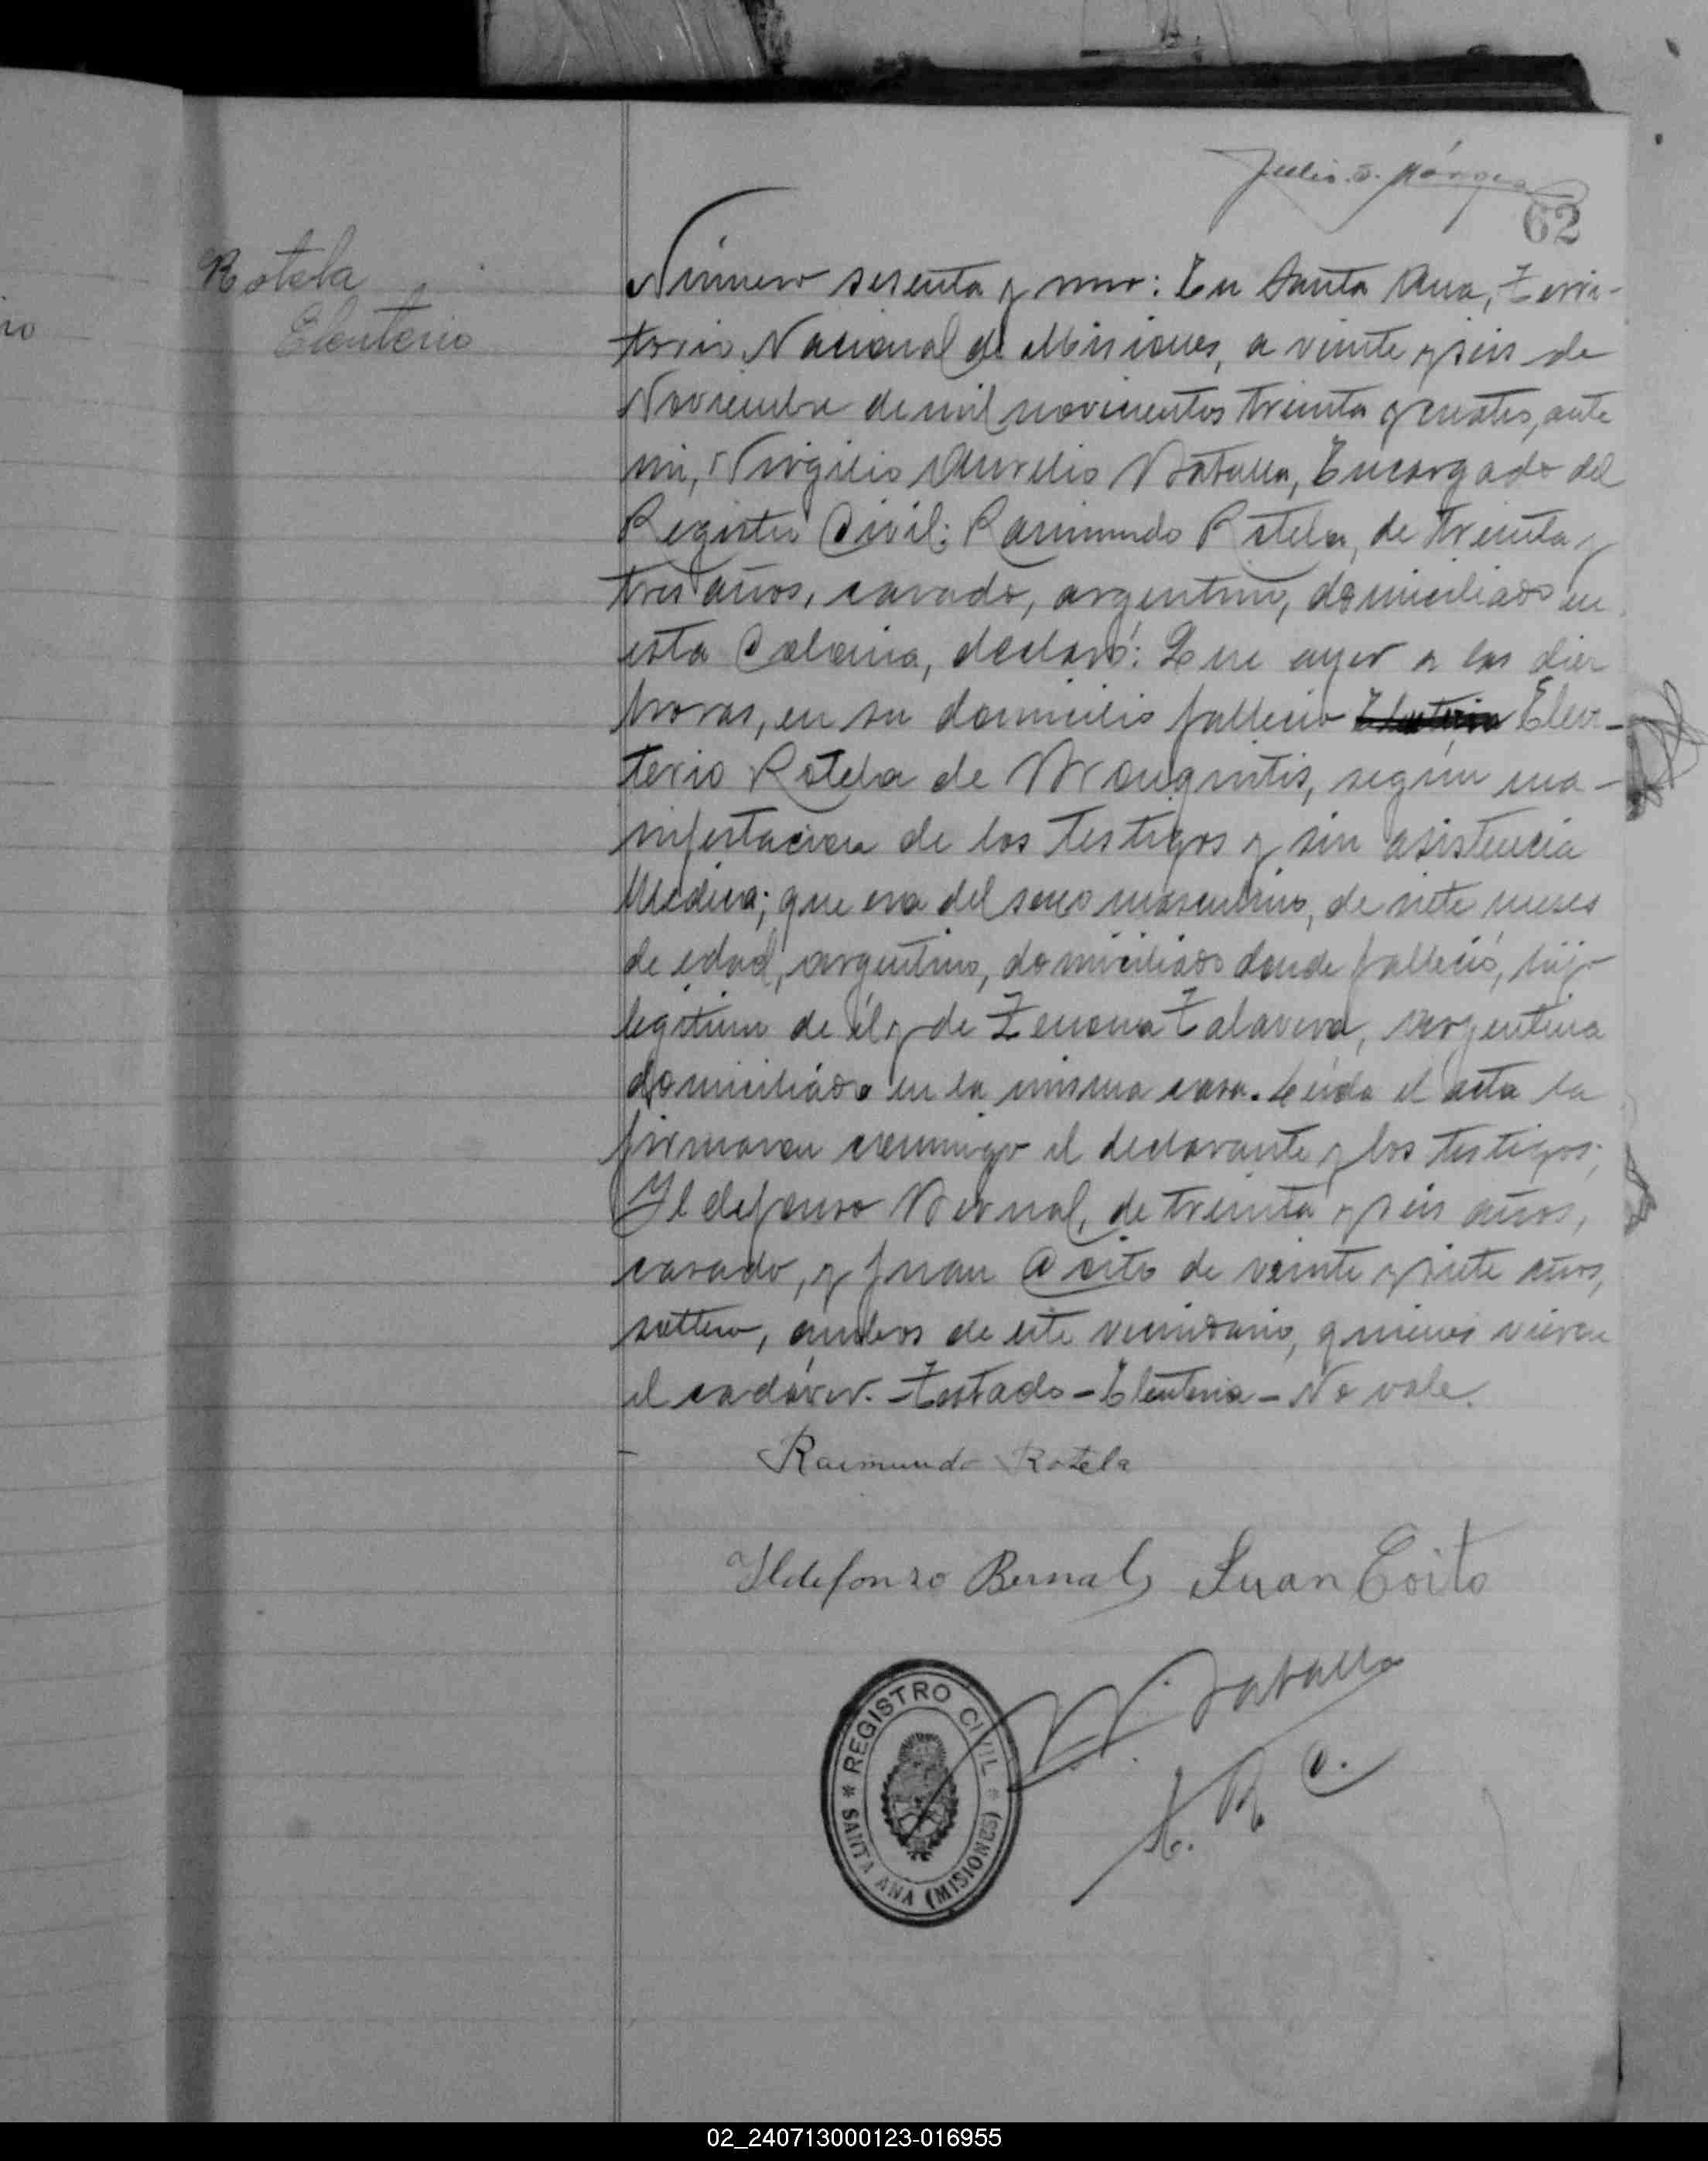 Julio S.
62
Rotela
Eleuterio
Número sesenta y uno: En Santa Ana, Terri-
torio Nacional de Misiones, a veinte y seis de
Noviembre de mil novecientos treinta y cuatro, ante
mi, Virgilio Aurelio Batalla, Encargado del
Registro Civil: Raimundo Rotela, de treinta y
tres años, casado, argentino, domiciliado en
esta Colonia, declaró: Que ayer a las diez
horas, en su domicilio falleció Eleuteria Eleu-
terio Rotela de Bronquitis, según ma-
nifestación de los testigos y sin asistencia
Medica; que era del sexo masculino, de siete meses
de edad, argentino, domiciliado donde falleció, hijo
legitimo de él y de Zenona Talavera, argentina
domiciliada en la misma casa. Leída el acta la
firmaron conmigo el declarante y los testigos;
Ildefonso Bernal, de treinta y seis años,
casado, y Juan Coito de veinte y siete años,
soltero, ambos de este vecindario, quienes vieron
el cadáver. Testado - Eleuteria - No vale.
Raimundo Rotela
Ildefonso Bernal Juan Coito
V. Batalla
E. R. C.
REGISTRO CIVIL
* SANTA ANA (MISIONES) *
02_240713000123-016955